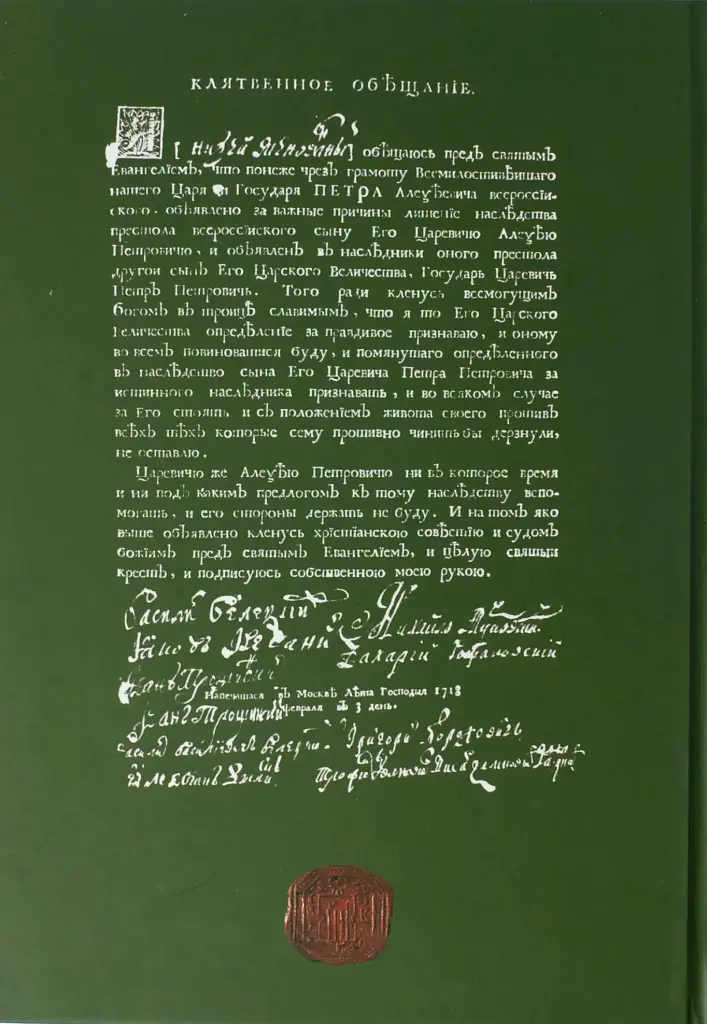 КЛЯТВЕННОЕ ОБѢЩАНІЕ.
[ ] обѣщаюсь предъ святымъ
Евангелїемъ, что понеже чрезъ грамоту Всемилостивѣишаго
нашего Царя и Государя ПЕТРА Алеѯѣевича всероссїи-
ского. объявлено за важные причины лишенїе наслѣдства
престола всероссїиского сыну Его Царевичю Алеѯѣю
Петровичю, и объявленъ въ наслѣдники оного престола
другои сынъ Его Царского Величества, Государь Царевичь
Петръ Петровичь. Того ради кленусь всемогущимъ
богомъ въ троицѣ славимымъ, что я то Его Царского
величества опредѣленїе за правдивое признаваю, и оному
во всемъ повиноватися буду, и помянутаго опредѣленного
въ наслѣдство сына Его Царевича Петра Петровича за
истинного наслѣдника признавать, и во всякомъ случае
за Его стоять и съ положенїемъ живота своего противъ
всѣхъ тѣхъ которые сему противно чинить бы дерзнули,
не оставлю.
Царевичю же Алеѯѣю Петровичю ни въ которое время
и ни подъ какимъ предлогомъ къ тому наслѣдству вспо-
могать, и его стороны держать не буду. И на томъ яко
выше объявлено кленусь хрїстїанскою совѣстїю и судомъ
божїимъ предъ святымъ Евангелїемъ, и цѣлую святыи
крестъ, и подписуюсь собственною моею рукою.
Михаило
Захарїй
Напечатася въ Москвѣ Лѣта Господня 1718
Февраля въ 3 день.
Григори